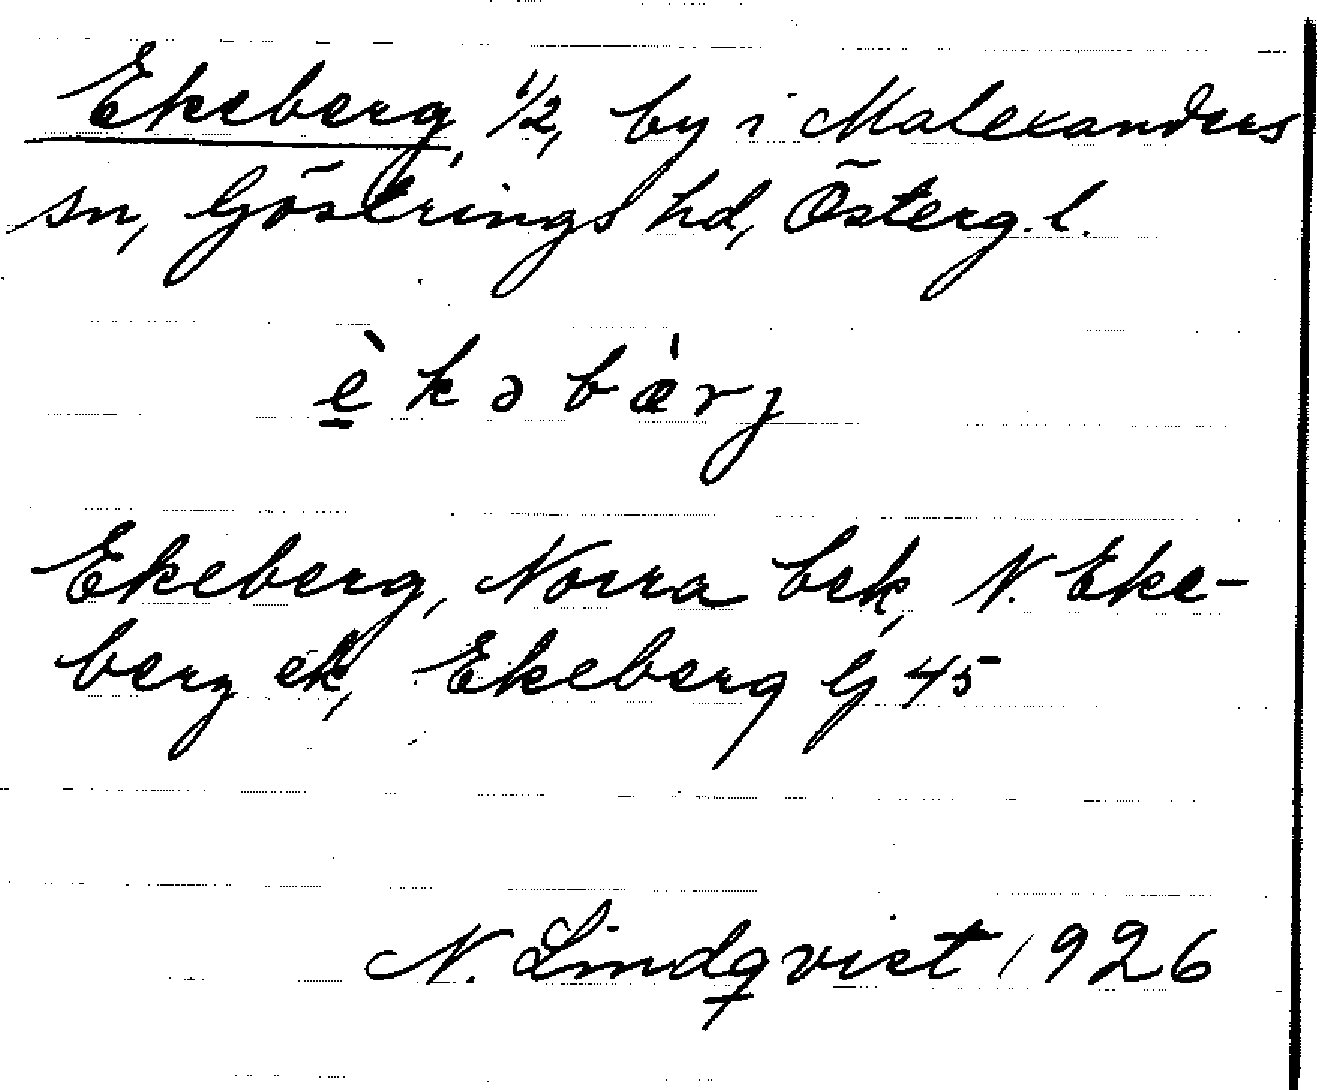 Ekeberg, 1/2, by i Malexanders
sn, Göstrings hd, Österg. l.
è̱ k ə b æ̀ r j
Ekeberg, Norra bek, N. Eke-
berg ek, Ekeberg G 45
N. Lindqvist 1926